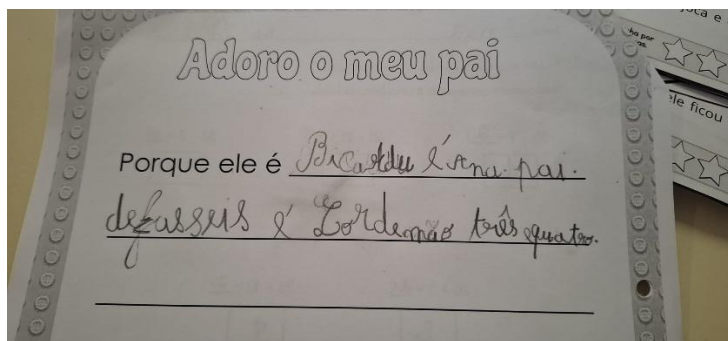 Adoro o meu pai
Porque ele é Bicardu é Ana pai.
dezasseis é Lordemão três quatro.
uca e
ele ficou